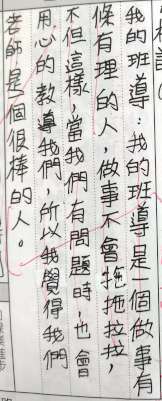 我的班導:我的班導是一個做事有
條有理的人,做事不會拖拖拉拉,
不但這樣,當我們有問題時,也會
用心的教導我們,所以我覺得我們
老師是個很棒的人。